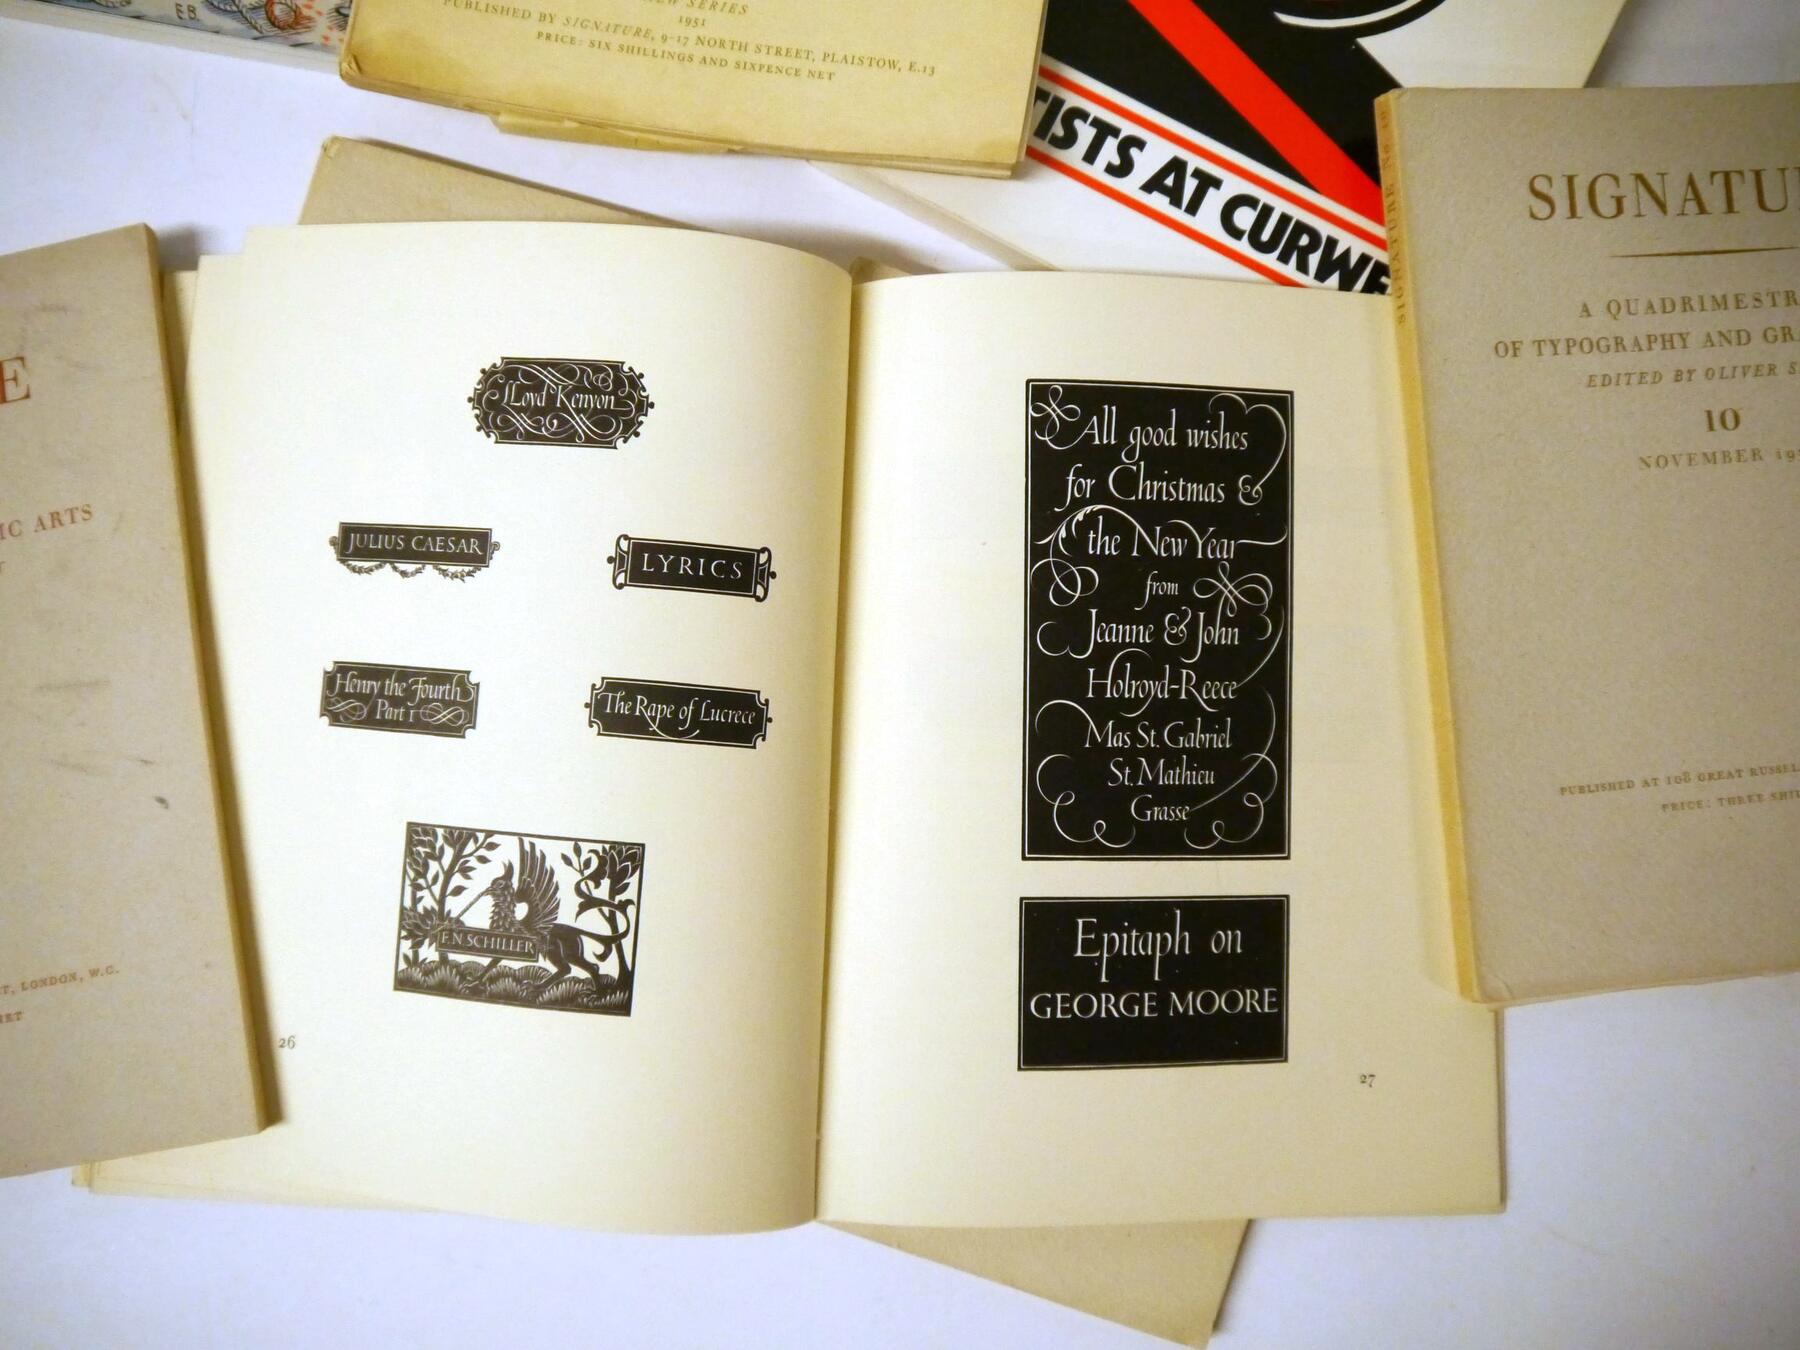 E.B.
NEW SERIES
1951
PUBLISHED BY SIGNATURE, 9-17 NORTH STREET, PLAISTOW, E.13
PRICE: SIX SHILLINGS AND SIXPENCE NET
TISTS AT CURWE
SIGNATURE No. 10
SIGNATU
A QUADRIMESTR
OF TYPOGRAPHY AND GRA
EDITED BY OLIVER S
10
NOVEMBER 19
PUBLISHED AT 108 GREAT RUSSEL
PRICE: THREE SHIL
E
IC ARTS
T, LONDON, W.C.
NET
Lloyd Kenyon
JULIUS CAESAR
LYRICS
Henry the Fourth
Part 1
The Rape of Lucrece
F. N. SCHILLER
26
All good wishes
for Christmas &
the New Year
from
Jeanne & John
Holroyd-Reece
Mas St. Gabriel
St. Mathieu
Grasse
Epitaph on
GEORGE MOORE
27